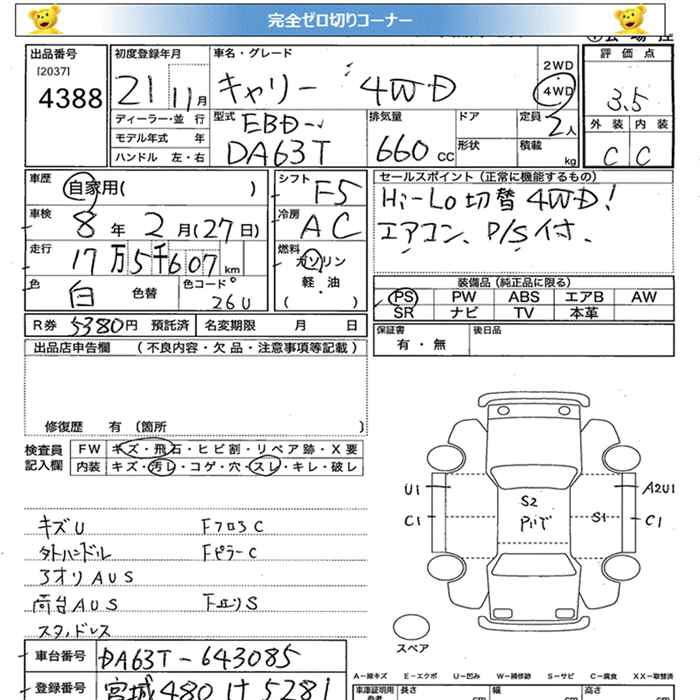 完全ゼロ切りコーナー
出品番号
[2037]
4388
初度登録年月
21 11月
ディーラー・並行
モデル年式 年
ハンドル 左・右
車名・グレード
キャリー 4WD
2WD
4WD
型式
EBD-
DA63T
排気量
660 cc
ドア
形状
定員
2人
積載
kg
評価点
3.5
外装 内装
C C
車歴
自家用( )
車検
8年 2月(27日)
走行
17万5千607km
色
白
色替
色コード
26U
シフト
F5
冷房
AC
燃料
ガソリン
軽・油
( )
セールスポイント(正常に機能するもの)
Hi-Lo切替 4WD!
エアコン、P/S付.
装備品(純正品に限る)
PS PW ABS エアB AW
SR ナビ TV 本革
R券 5380円 預託済 名変期限 月 日
保証書
有・無
後日品
出品店申告欄 (不良内容・欠品・注意事項等記載)
修復歴 有 〔箇所 〕
検査員
記入欄
FW キズ・飛石・ヒビ割・リペア跡・X要
内装 キズ・汚レ・コゲ・穴・スレ・キレ・破レ
キズU FフロCC
外ハンドル FピラーC
アオリAUS
荷台AUS
スタッドレス
U1
C1
S2
S1
A2U1
C1
スペア
車台番号 DA63T-643085
登録番号 宮城480 け 5281
A-線キズ E-エクボ U-凹み W-補修跡 S-サビ C-腐食 XX-取替済
車庫証明用
参考
長さ cm
幅 cm
高さ cm